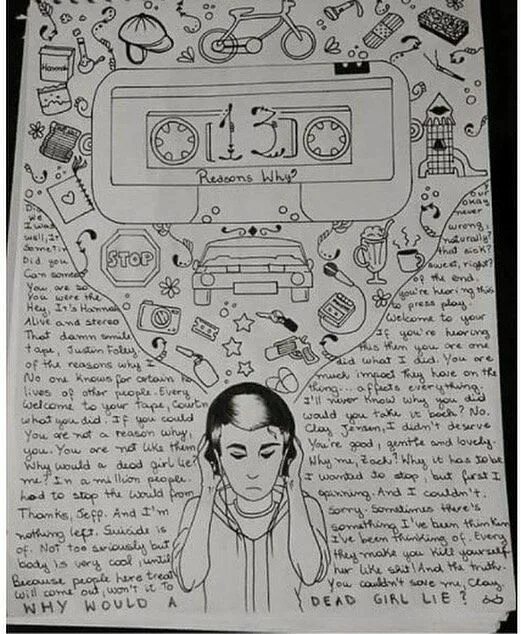 Hannah
13
Reasons Why?
STOP
Did
we
I was
well, I
Sometim
Did you
Can someo
You are so
You were the
Hey, It's Hannah
Alive and stereo
That damn smile
tape, Justin Foley.
of the reasons why I
No one knows for certain ho
lives of other people. Every
Welcome to your tape, Courtn
what you did. If you could
You are not a reason why,
you. You are not like them
Why would a dead girl lie?
me? In a million people.
had to stop the would from
Thanks, Jeff. And I'm
nothing left. Suicide is
of. Not too seriously but
body is very cool, until
Because people here treat
will come out, won't it To
our
okay
never
wrong,
naturally?
that sick?
sweet, right?
of the end.
you're hearing this
to press play
Welcome to your
If you're hearing
this then you are one
did what I did. You are
much impact they have on the
thing... affects everything.
I'll never know why you did
would you take it back? No.
Clay Jensen, I didn't deserve
You're good, gentle and lovely.
Why me, Zach? Why it has to be
I wanted to stop, but first I
spinning. And I couldn't.
sorry. Sometimes there's
something I've been thinkin
I've been thinking of. Every
they make you kill yourself
her like shit! And the truth.
You couldn't save me, Clay.
WHY WOULD A DEAD GIRL LIE?